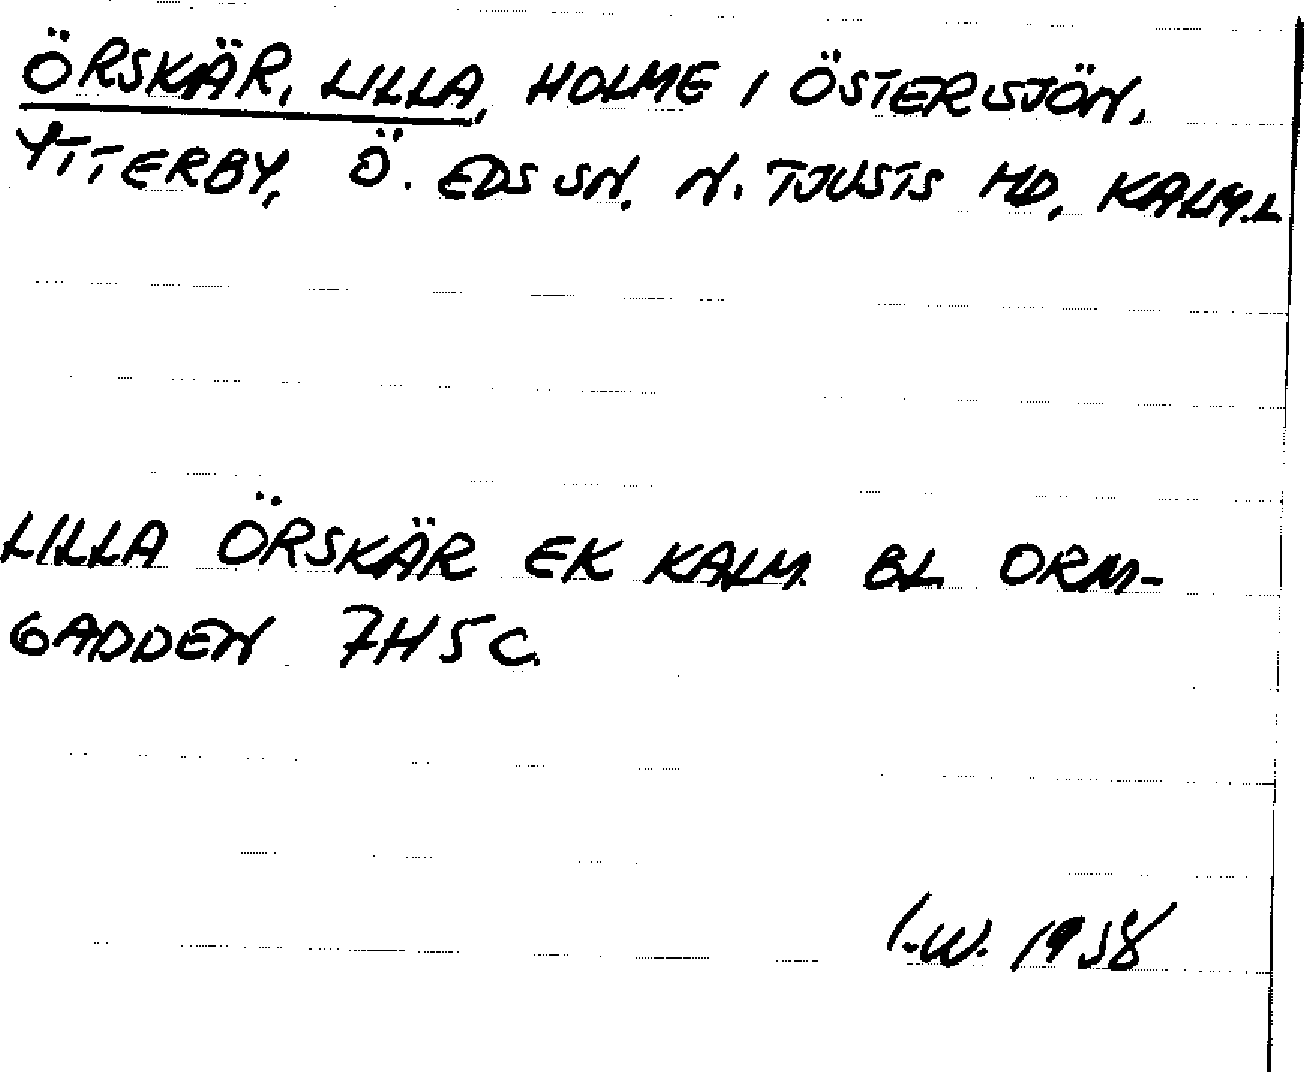 ÖRSKÄR, LILLA, HOLME I ÖSTERSJÖN,
YTTERBY, Ö. EDS SN, N. TJUSTS HD, KALM.L
LILLA ÖRSKÄR EK KALM. BL ORM-
GADDEN 7H5C.
I.W. 1958